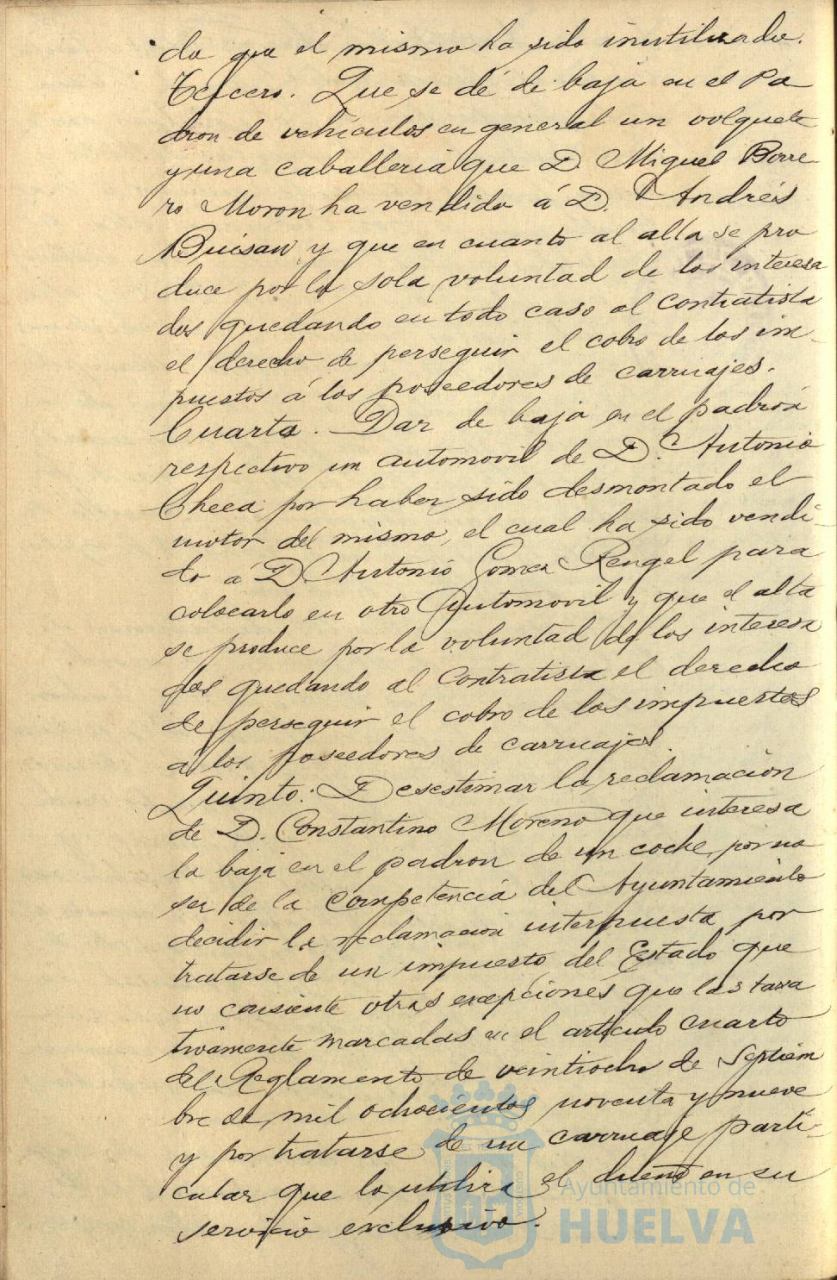 do que el mismo ha sido inutilizado.
Tercero. Que se dé de baja en el Pa
dron de vehiculos en general un volquete
y una caballeria que D. Miguel Borre
ro Moron ha vendido á D. Andrés
Buisan y que en cuanto al alta se pro
duce por la sola voluntad de los interesa
dos quedando en todo caso al Contratista
el derecho de perseguir el cobro de los im-
puestos á los poseedores de carruajes.
Cuarto. Dar de baja en el padron
respectivo un automovil de D. Antonio
Checa por haber sido desmontado el
motor del mismo, el cual ha sido vendi-
do á D Antonio Gomez Rengel para
colocarlo en otro Automovil y que el alta
se produce por la voluntad de los interesa
dos quedando al Contratista el derecho
de perseguir el cobro de los impuestos
a los poseedores de carruajes.
Quinto: Desestimar la reclamacion
de D. Constantino Moreno que interesa
la baja en el padron de un coche, por no
ser de la competencia del Ayuntamiento
decidir la reclamacion interpuesta por
tratarse de un impuesto del Estado que
no consiente otras excepciones que las taxa
tivamente marcadas en el articulo cuarto
del Reglamento de veintiocho de Septiem
bre de mil ochocientos noventa y nueve
y por tratarse de un carruaje parti-
cular que lo utiliza el dueño en su
servicio exclusivo.
Ayuntamiento de
HUELVA